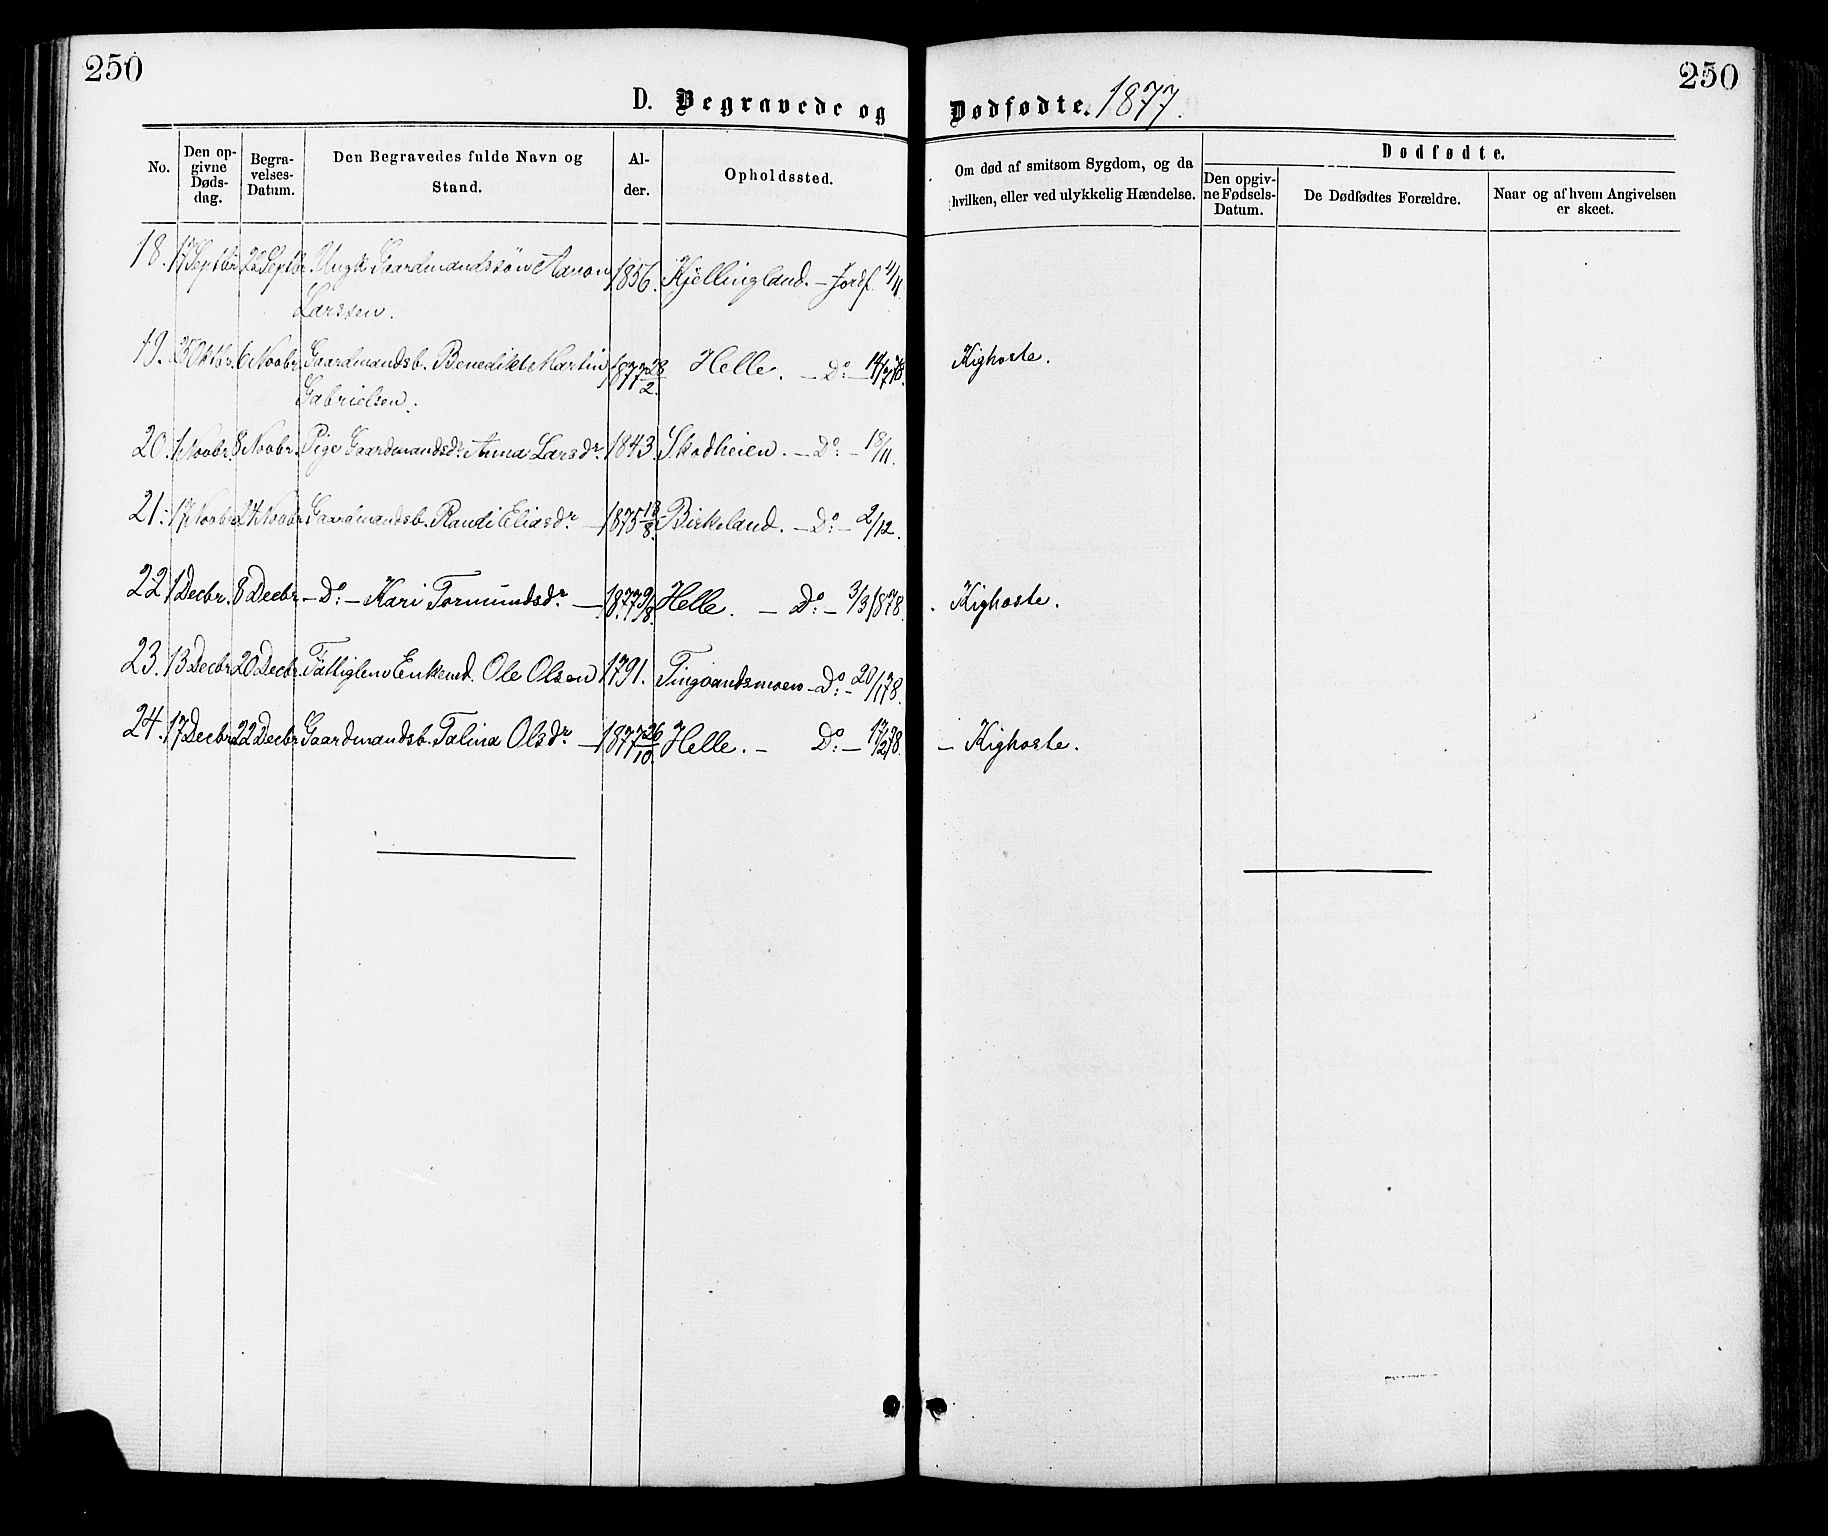 250
250
D. Begravede og Dødfødte. 1877.
No.
Den opgivne Dødsdag.
Begravelses-Datum.
Den Begravedes fulde Navn og Stand.
Alder.
Opholdssted.
Om død af smitsom Sygdom, og da hvilken, eller ved ulykkelig Hændelse.
Dødfødte.
Den opgivne Fødsels-Datum.
De Dødfødtes Forældre.
Naar og af hvem Angivelsen er skeet.
18. 17 Septbr. 22 Septbr. Ungk. Gaardmandssøn Aanon 1856. Kjellingland. – Jordf. 4/11.
Larssen.
19. 25 Oktbr. 6 Novbr. Gaardmandsb. Benedikt Martin 1877 28/2. Helle. – Do: – 14/7 78. Kighoste.
Gabrielsen.
20. 1 Novbr. 8 Novbr. Pige Gaardmandsdr. Anna Larsdr. 1843. Skodheien. – Do: – 18/11.
21. 17 Novbr. 24 Novbr. Gaardmandsb. Randi Eliasdr. – 1875 18/8. Birkeland. – Do: – 2/12.
22. 1 Decbr. 8 Decbr. – Do: – Kari Tormundsdr. – 1877 9/8. Helle. – Do: – 3/3 1878. Kighoste.
23. 13 Decbr. 20 Decbr. Fattiglem Enkemd. Ole Olsen 1791. Tingvandsmoen – Do: – 20/1 78.
24. 17 Decbr. 22 Decbr. Gaardmandsb. Talina Olsdr. – 1877 26/10. Helle. – Do: – 17/2 78. – Kighoste.